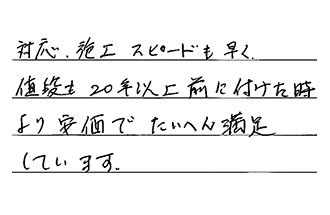 対応、施工 スピードも早く、
値段も 20年以上前に付けた時
より安価で たいへん満足
しています。